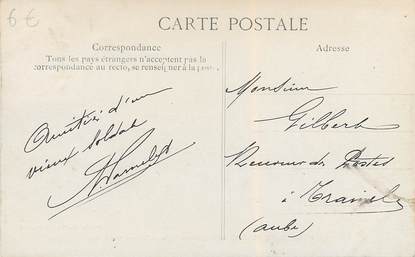 6€
CARTE POSTALE
Correspondance
Tous les pays étrangers n'acceptent pas la
correspondance au recto, se renseigner à la poste
Adresse
Amitiés d'un
vieux soldat
Monsieur
Gilbert
Receveur des Postes
à Trainel
(Aube)